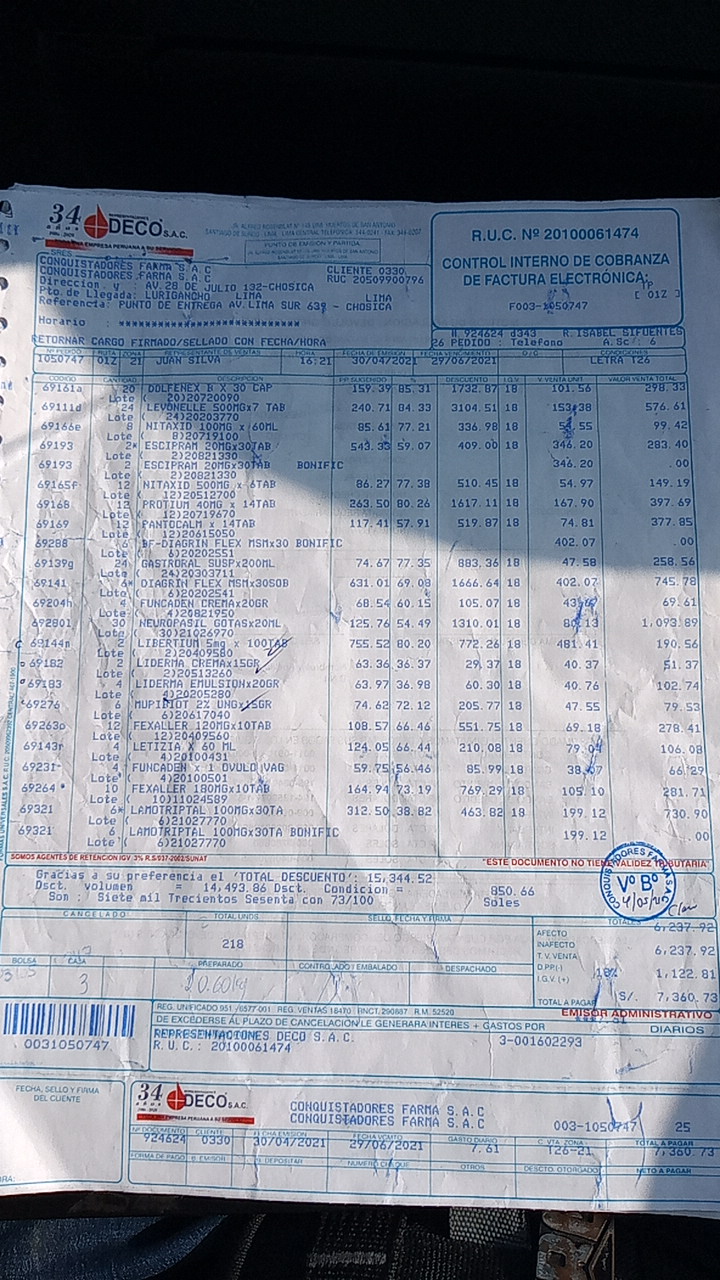 34 años
DECO S.A.C.
UNA EMPRESA PERUANA A SU
PUNTO DE EMISION Y PARTIDA
R.U.C. Nº 20100061474
CONTROL INTERNO DE COBRANZA
DE FACTURA ELECTRÓNICA:
F003-1050747
[ 01Z ]
SRES
CONQUISTADORES FARMA S.A.C
CONQUISTADORES FARMA S.A.C
CLIENTE 0330
RUC 20509900796
Direccion y : AV.28 DE JULIO 132-CHOSICA
Pto de Llegada: LURIGANCHO LIMA LIMA
Referencia: PUNTO DE ENTREGA AV LIMA SUR 639 - CHOSICA
Horario : ******************
RETORNAR CARGO FIRMADO/SELLADO CON FECHA/HORA
N.924624 d343 R.ISABEL SIFUENTES
26 PEDIDO : Telefono A.Sc: 6
Nº PEDIDO RUTA ZONA REPRESENTANTE DE VENTAS HORA FECHA DE EMISION FECHA VENCIMIENTO O/C CONDICIONES
1050747 01Z 21 JUAN SILVA 16:21 30/04/2021 29/06/2021 LETRA T26
CODIGO CANTIDAD DESCRIPCION PP.SUGERIDO % DESCUENTO I.G.V V.VENTA UNIT VALOR VENTA TOTAL
69161a 20 DOLFENEX B X 30 CAP 159.39 85.31 1732.87 18 101.56 298.33
Lote ( 20)20720090
69111d 24 LEVONELLE 500MGx7 TAB 240.71 84.33 3104.51 18 153.38 576.61
Lote ( 24)20203770
69166e 8 NITAXID 100MG x 60ML 85.61 77.21 336.98 18 54.55 99.42
Lote ( 8)20719100
69193 2* ESCIPRAM 20MGx30TAB 543.33 59.07 409.00 18 346.20 283.40
Lote ( 2)20821330
69193 2 ESCIPRAM 20MGx30TAB BONIFIC 346.20 .00
Lote ( 2)20821330
69165f 12 NITAXID 500MG x 6TAB 86.27 77.38 510.45 18 54.97 149.19
Lote ( 12)20512700
69168 12 PROTIUM 40MG x 14TAB 263.50 80.26 1617.11 18 167.90 397.69
Lote ( 12)20719670
69169 12 PANTOCALM x 14TAB 117.41 57.91 519.87 18 74.81 377.85
Lote ( 12)20615050
69288 6 BF-DIAGRIN FLEX MSMx30 BONIFIC 402.07 .00
Lote ( 6)20202551
69139g 24 GASTRORAL SUSPx200ML 74.67 77.35 883.36 18 47.58 258.56
Lote ( 24)20303711
69141 6* DIAGRIN FLEX MSMx30SOB 631.01 69.08 1666.64 18 402.07 745.78
Lote ( 6)20202541
69204h 4 FUNCADEN CREMAx20GR 68.54 60.15 105.07 18 69.61
Lote ( 4)20821950
692801 30 NEUROPASIL GOTASx20ML 125.76 54.49 1310.01 18 80.13 1,093.89
Lote ( 30)21026970
69144n 2 LIBERTIUM 5mg x 100TAB 755.52 80.20 772.26 18 481.41 190.56
Lote ( 2)20409580
69182 2 LIDERMA CREMAx15GR 63.36 36.37 29.37 18 40.37 51.37
Lote ( 2)20513260
69183 4 LIDERMA EMULSIONx20GR 63.97 36.98 60.30 18 40.76 102.74
Lote ( 4)20205280
69276 6 MUPIDIOT 2% UNGx15GR 74.62 72.12 205.77 18 47.55 79.53
Lote ( 6)20617040
69263o 12 FEXALLER 120MGx10TAB 108.57 66.46 551.75 18 69.18 278.41
Lote ( 12)20409560
69143r 4 LETIZIA X 60 ML 124.05 66.44 210.08 18 79.04 106.08
Lote ( 4)20100431
69231 4 FUNCADEN x 1 OVULO VAG 59.75 56.46 85.99 18 38.07 66.29
Lote ( 4)20100501
69264 * 10 FEXALLER 180MGx10TAB 164.94 73.19 769.29 18 105.10 281.71
Lote ( 10)11024589
69321 6* LAMOTRIPTAL 100MGx30TA 312.50 38.82 463.82 18 199.12 730.90
Lote ( 6)21027770
69321 6 LAMOTRIPTAL 100MGx30TA BONIFIC 199.12 .00
Lote ( 6)21027770
SOMOS AGENTES DE RETENCION IGV 3% R.S/037-2002/SUNAT
"ESTE DOCUMENTO NO TIENE VALIDEZ TRIBUTARIA"
Gracias a su preferencia el 'TOTAL DESCUENTO': 15,344.52
Dsct. volumen = 14,493.86 Dsct. Condicion = 850.66
Son : Siete mil Trecientos Sesenta con 73/100 Soles
CONQUISTADORES FARMA S.A.C.
Vº Bº
CANCELADO TOTAL UNDS SELLO, FECHA Y FIRMA TOTALES
218
AFECTO 6,237.92
INAFECTO
T.V. VENTA 6,237.92
D.PP(-)
I.G.V. (+) 18% 1,122.81
TOTAL A PAGAR S/. 7,360.73
BOLSA CAJA PREPARADO CONTROLADO / EMBALADO DESPACHADO
3
EMISOR ADMINISTRATIVO
REG. UNIFICADO 951 /6577-001 REG. VENTAS 18470 RNCT. 290887 R.M. 52520
DE EXCEDERSE AL PLAZO DE CANCELACION LE GENERARA INTERES + GASTOS POR DIARIOS
REPRESENTACIONES DECO S.A.C. 3-001602293
R.U.C.: 20100061474
0031050747
FECHA, SELLO Y FIRMA
DEL CLIENTE
34 años
DECO S.A.C.
CONQUISTADORES FARMA S.A.C
CONQUISTADORES FARMA S.A.C
003-1050747 25
Nº DOCUMENTO CLIENTE FECHA EMISION FECHA VCMTO GASTO DIARIO C. VTA ZONA TOTAL A PAGAR
924624 0330 30/04/2021 29/06/2021 7.61 T26-21 7,360.73
FORMA DE PAGO B. EMISOR B. DEPOSITAR NUMERO CHEQUE OTROS DESCTO. OTORGADO NETO A PAGAR